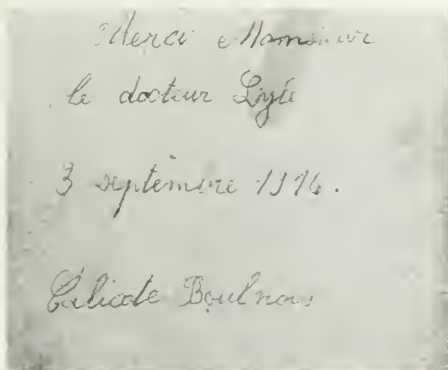 Merci Monsieur
le docteur
3 septembre 1916.
Boulnois